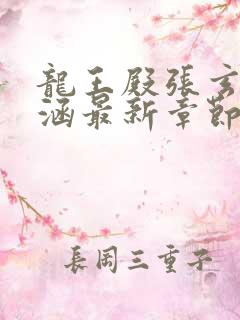 龍王殿張玄
涵最新章節
長岡三重子